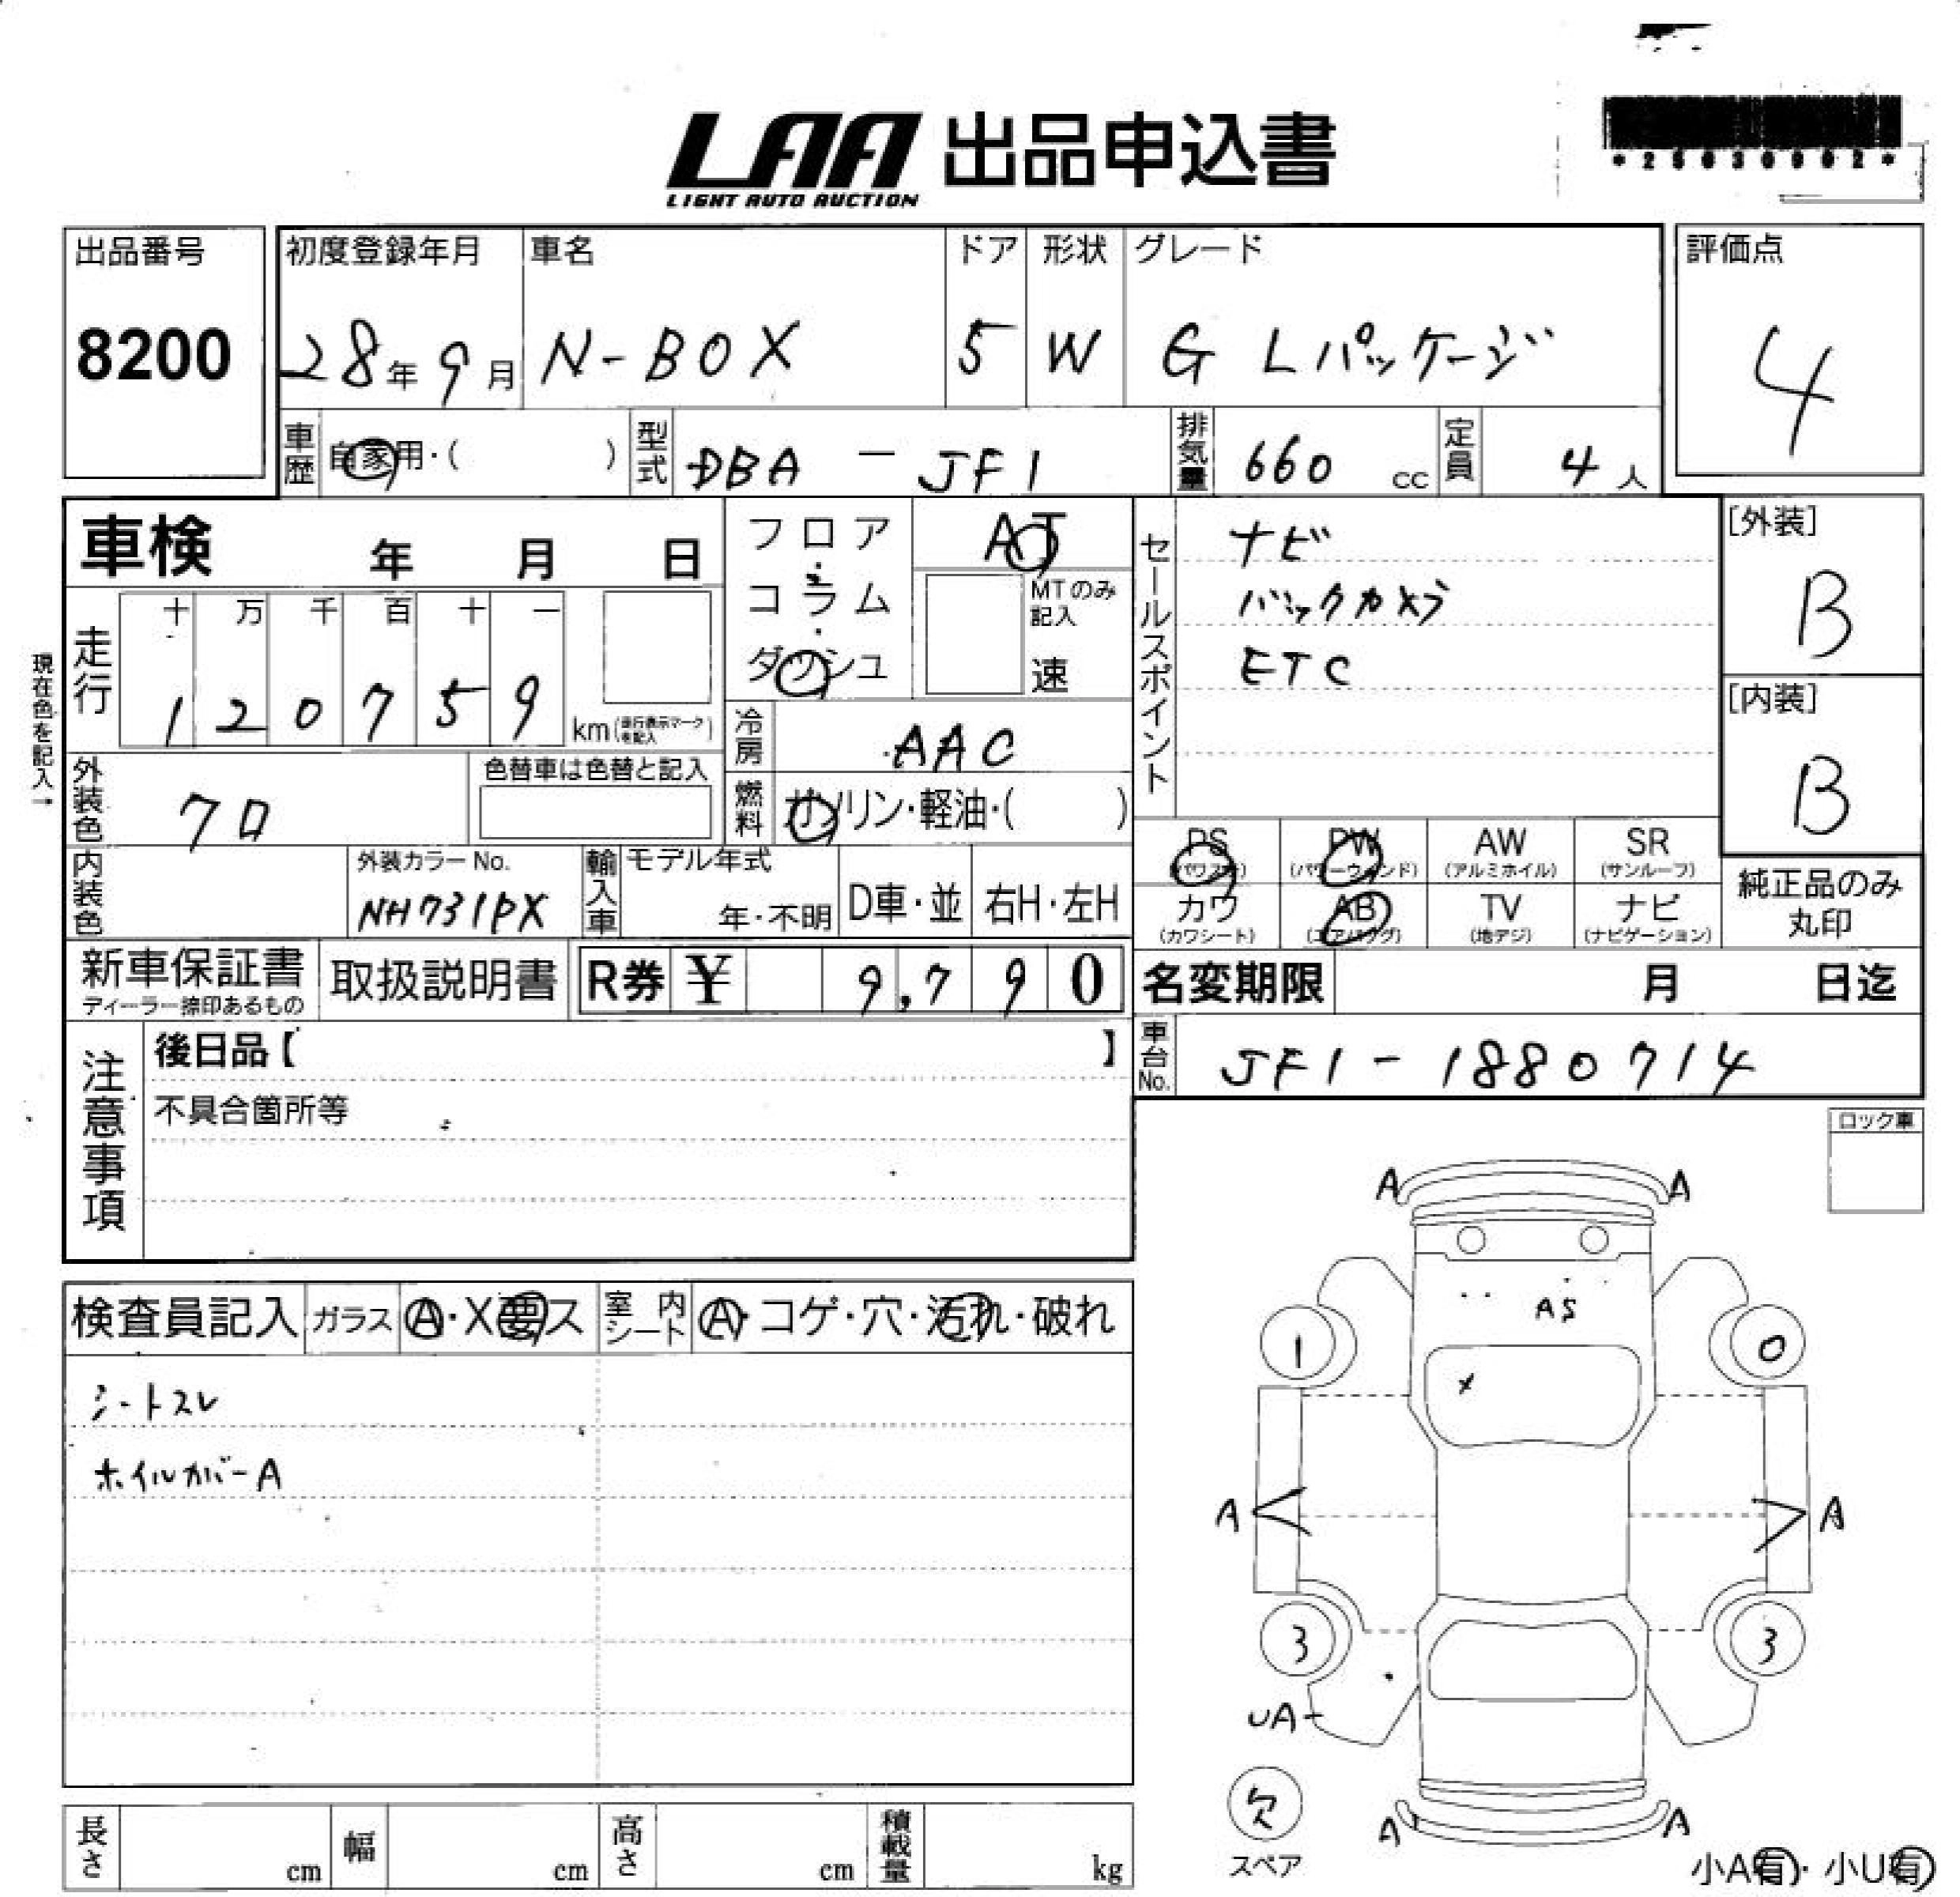 LAA 出品申込書
LIGHT AUTO AUCTION
出品番号
8200
初度登録年月
28年 9月
車名
N-BOX
ドア
5
形状
W
グレード
G Lパッケージ
評価点
4
車歴
自家用・( )
型式
DBA - JF1
排気量
660 cc
定員
4 人
車検 年 月 日
フロア・コラム・ダッシュ
AT
MTのみ記入
速
セールスポイント
ナビ
バックカメラ
ETC
[外装]
B
[内装]
B
現在色を記入→
走行
十 万 千 百 十 一
1 2 0 7 5 9
km(走行表示マークを記入)
冷房
AAC
外装色
クロ
色替車は色替と記入
燃料
ガソリン・軽油・( )
PS (パワステ)
PW (パワーウィンド)
AW (アルミホイル)
SR (サンルーフ)
カワ (カワシート)
AB (エアバッグ)
TV (地デジ)
ナビ (ナビゲーション)
純正品のみ
丸印
内装色
外装カラーNo.
NH731PX
輸入車
モデル年式
年・不明
D車・並
右H・左H
新車保証書
ディーラー捺印あるもの
取扱説明書
R券 ¥ 9,790
名変期限 月 日迄
車台No.
JF1-1880714
注意事項
後日品【 】
不具合箇所等
ロック車
検査員記入
ガラス
A・X要ス
室内シート
A・コゲ・穴・汚れ・破れ
シートスレ
ホイルカバーA
A A
AS
1 0
X
A A
3 3
UA
欠
スペア
A A
小A有・小U有
長さ cm
幅 cm
高さ cm
積載量 kg